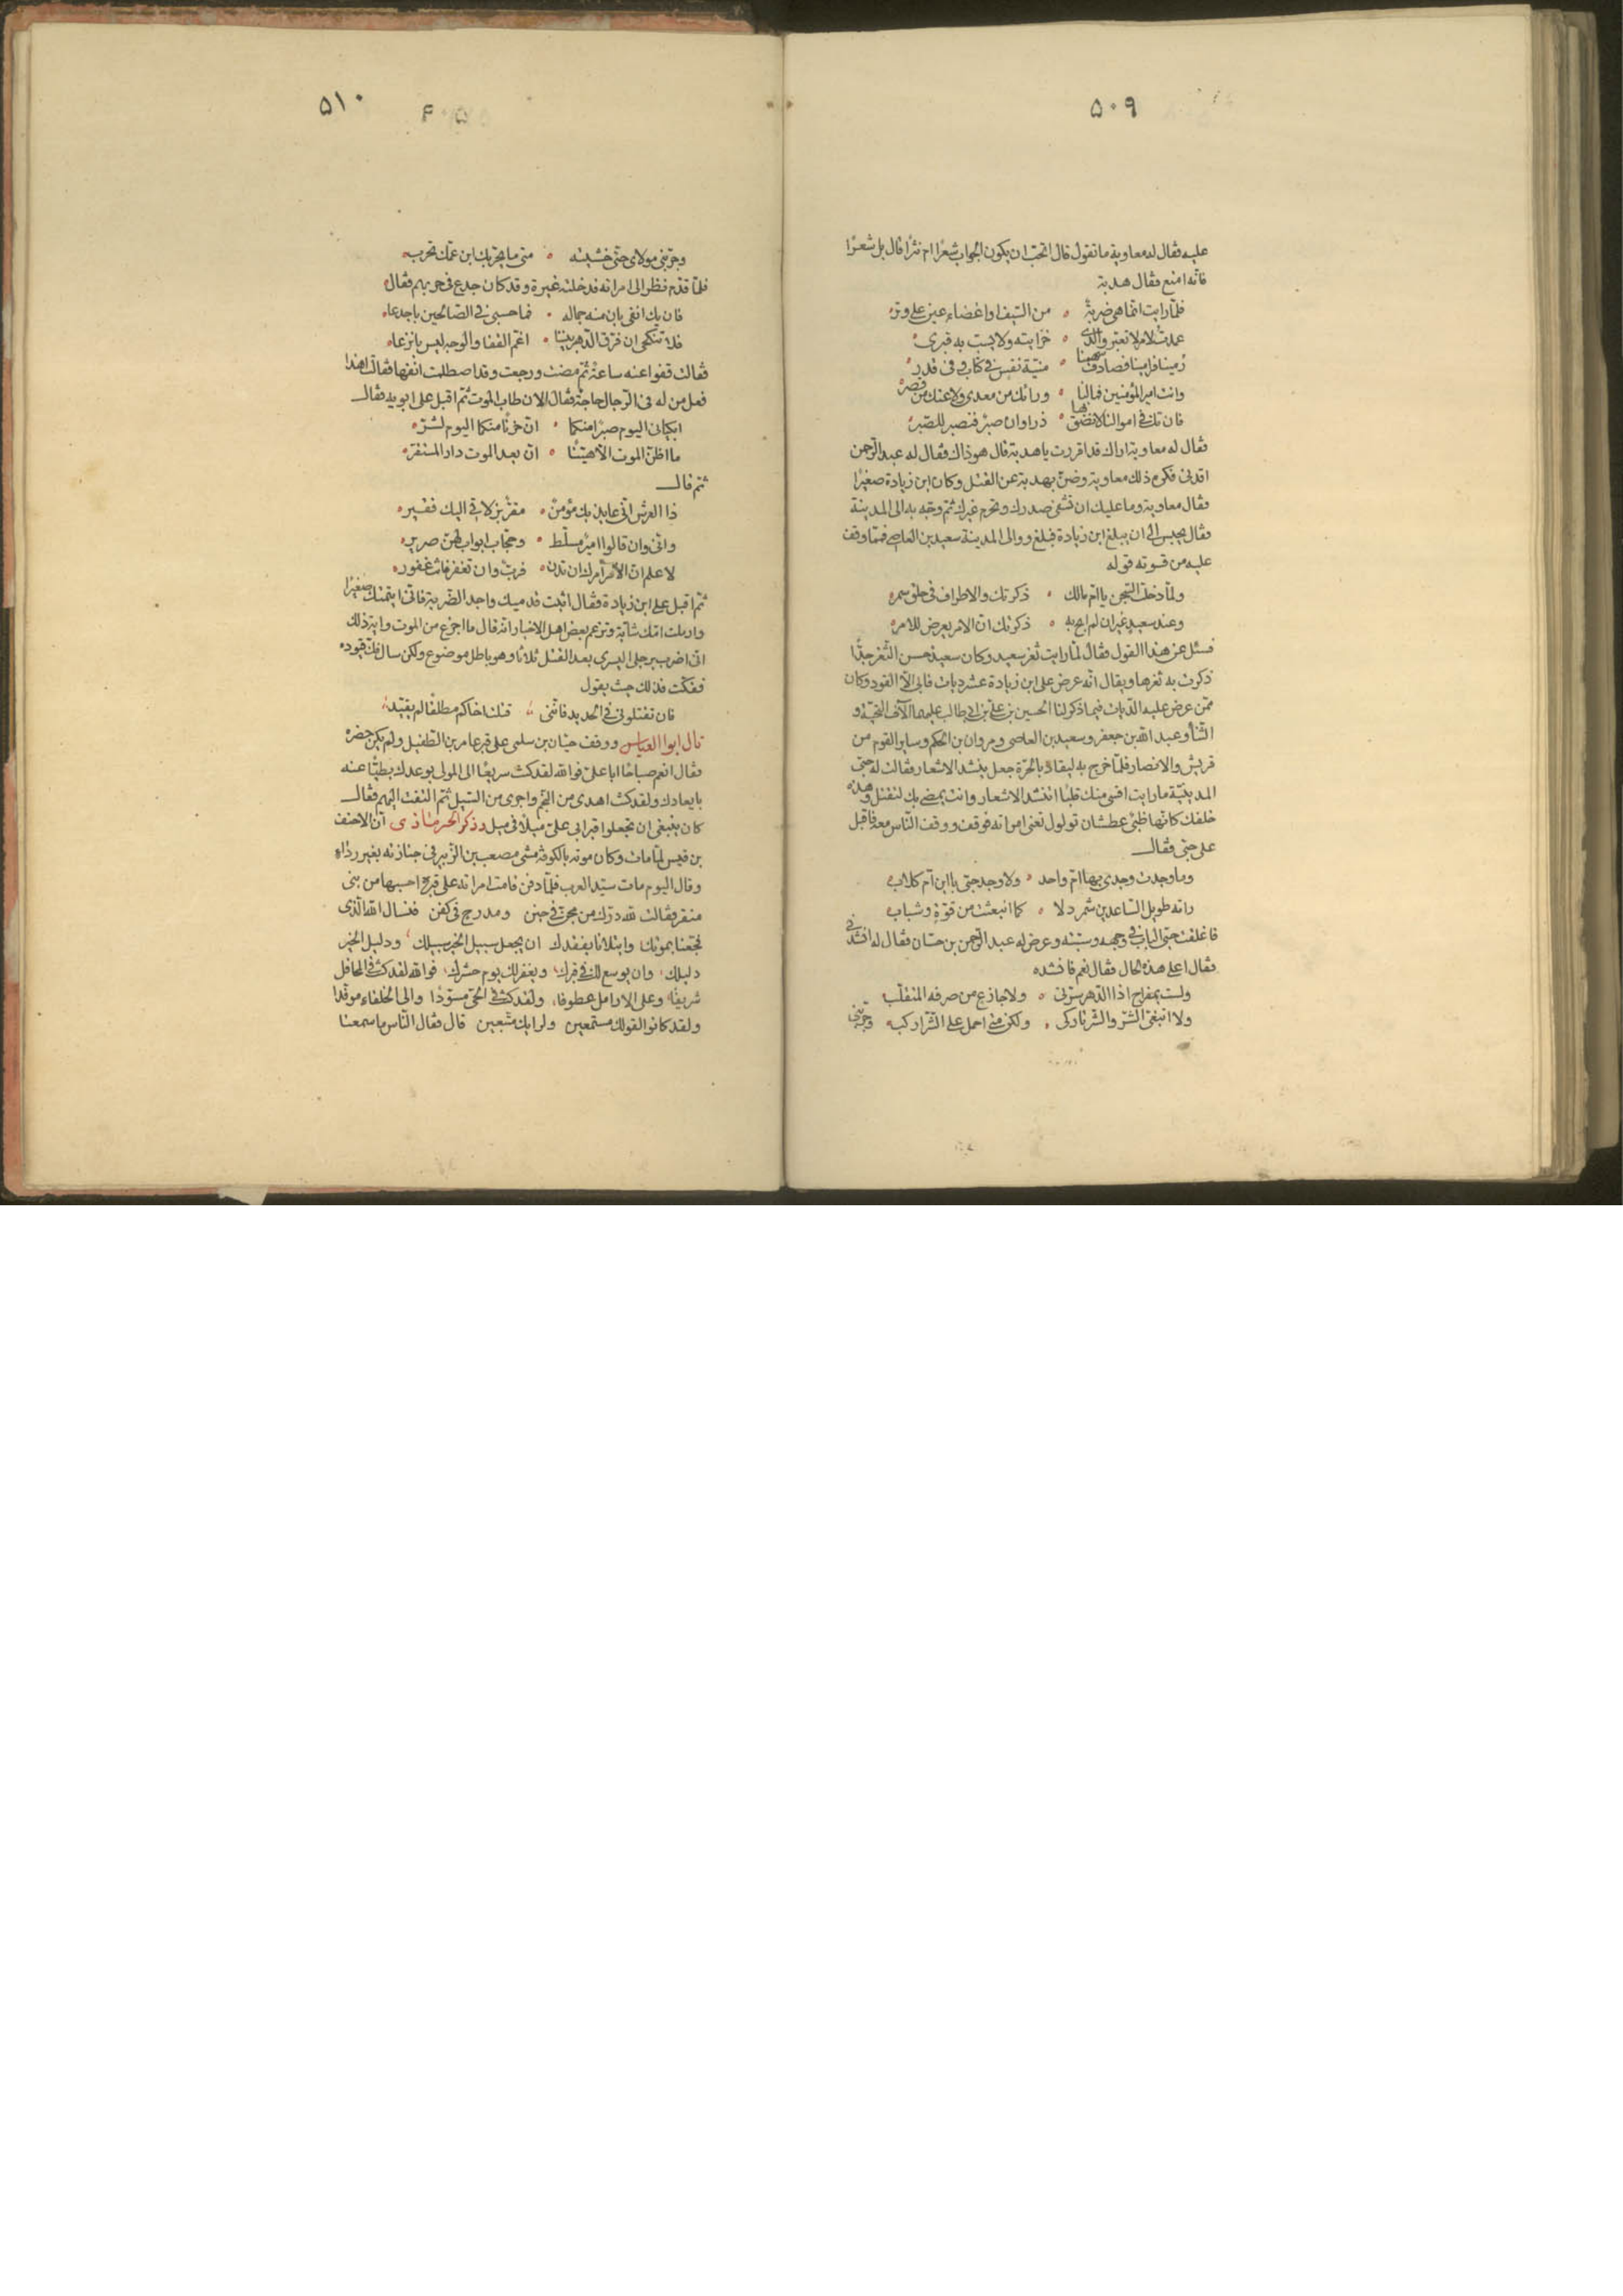 ۵۰۹
عليه فقال له معاوية ما تقول قال اتحب ان يكون الجواب شعرا ام نثرا قال بل شعرا
فانه امنع فقال هدبة
فلما رايت انما هي ضربة من السيف او اغضاء عين على وتر
عمدت لامر لا تعير والدى خزايته ولا يسب به قبرى
رمينا فرامينا فصادف سهمنا منية نفس فى كتاب وفى قدر
وانت امير المؤمنين فما لنا ورائك من معدى ولا عنك من قصر
فان تك فى اموالنا لا نضق بها ذراعا وان صبر فنصبر للصبر
فقال له معاوية اراك قد اقررت يا هدبة قال هو ذاك فقال له عبد الرحمن
اقدنى فكره ذلك معاوية وضن بهدبة عن القتل وكان ابن زيادة صغيرا
فقال معاوية وما عليك ان تشفى صدرك وتحرم غيرك ثم وجه به الى المدينة
فقال يحبس الى ان يبلغ ابن زيادة فبلغ ووالى المدينة سعيد بن العاصى فمما وقف
عليه من قسوته قوله
ولما دخلت السجن يا ام مالك ذكرتك والاطراف فى حلق سمر
وعند سعيد غير ان لم ابح به ذكرتك ان الامر يعرض للامر
فسئل عن هذا القول فقال لما رايت ثغر سعيد وكان سعيد حسن الثغر جدا
ذكرت به ثغرها ويقال انه عرض على ابن زيادة عشر ديات فابى الا القود وكان
ممن عرض عليه الديات فيما ذكر لنا الحسين بن على بن ابى طالب عليهما الاف التحية و
الثنا وعبد الله بن جعفر وسعيد بن العاصى ومروان بن الحكم وساير القوم من
قريش والانصار فلما خرج به ليقاد بالحرة جعل ينشد الاشعار فقالت له حبى
المدينية ما رايت اقسى منك قلبا اتنشد الاشعار وانت يمضى بك لتقتل وهذه
خلفك كانها ظبى عطشان تولول تعنى امراته فوقف ووقف الناس معه فاقبل
على حبى فقال
وما وجدت وجدى بها ام واحد ولا وجد حبى يا ابن ام كلاب
راته طويل الساعدين شمردلا كما انبعثت من قوة وشباب
فاغلقت حبى الباب فى وجهه وسبته وعرض له عبد الرحمن بن حسان فقال له انشدنى
فقال اعلى هذه الحال فقال نعم فانشده
ولست بمفراح اذا الدهر سرنى ولا جازع من صرفه المتقلب
ولا ابتغى الشر والشر تاركى ولكن متى احمل على الشر اركب
وجربنى
۵۱۰
وجربنى مولاى حتى خشيته متى ما يحربك ابن عمك تحرب
فلما قدم نظر الى امراته فدخلته غيرة وقد كان جدع فى حربهم فقال
فان يك انفى بان منه جماله فما حسبى فى الصالحين باجدعا
فلا تنكحى ان فرق الدهر بيننا اغم القفا والوجه ليس بانزعا
فقالت قفوا عنه ساعة ثم مضت ورجعت وقد اصطلمت انفها فقالت اهذا
فعل من له فى الرجال حاجة فقال الان طاب الموت ثم اقبل على ابويه فقال
ابكيانى اليوم صبرا منكما ان حزنا منكما اليوم لشر
ما اظن الموت الا هينا ان بعد الموت دار المستقر
ثم قال
ذا العرش انى عايذ بك مؤمن مقر بزلاتى اليك فقير
وانى وان قالوا امير مسلط وحجاب ابواب لهن صرير
لاعلم ان الامر امرك ان تدن فرب وان تغفر فانت غفور
ثم اقبل على ابن زيادة فقال اثبت قدميك واجد الضربة فانى ايتمتك صغيرا
وارملت امك شابة وتزعم بعض اهل الاخبار انه قال ما اجزع من الموت واية ذلك
انى اضرب برجلى اليسرى بعد القتل ثلاثا وهو باطل موضوع ولكن سال فك قيوده
ففكت فذلك حيث يقول
فان تقتلونى فى الحديد فاننى قتلت اخاكم مطلقا لم يقيد
قال ابو العباس ووقف حيان بن سلمى على قبر عامر بن الطفيل ولم يكن حضره
فقال انعم صباحا ابا على فوالله لقد كنت سريعا الى المولى بوعدك بطيئا عنه
بايعادك ولقد كنت اهدى من النجم واجرى من السيل ثم التفت اليهم فقال
كان ينبغى ان تجعلوا قبر ابى على ميلا فى ميل وذكر الحرمازى ان الاحنف
بن قيس لما مات وكان موته بالكوفة مشى مصعب بن الزبير فى جنازته بغير رداء
وقال اليوم مات سيد العرب فلما دفن قامت امراته على قبره احسبها من بنى
منقر فقالت لله درك من مجن فى جنن ومدرج فى كفن فنسال الله الذى
فجعنا بموتك وابتلانا بفقدك ان يجعل سبيل الخير سبيلك ودليل الخير
دليلك وان يوسع لك فى قبرك ويغفر لك يوم حشرك فوالله لقد كنت فى المحافل
شريفا وعلى الارامل عطوفا ولقد كنت فى الحى مسودا والى الخلفاء موفدا
ولقد كانوا لقولك مستمعين ولرايك متبعين قال فقال الناس ما سمعنا